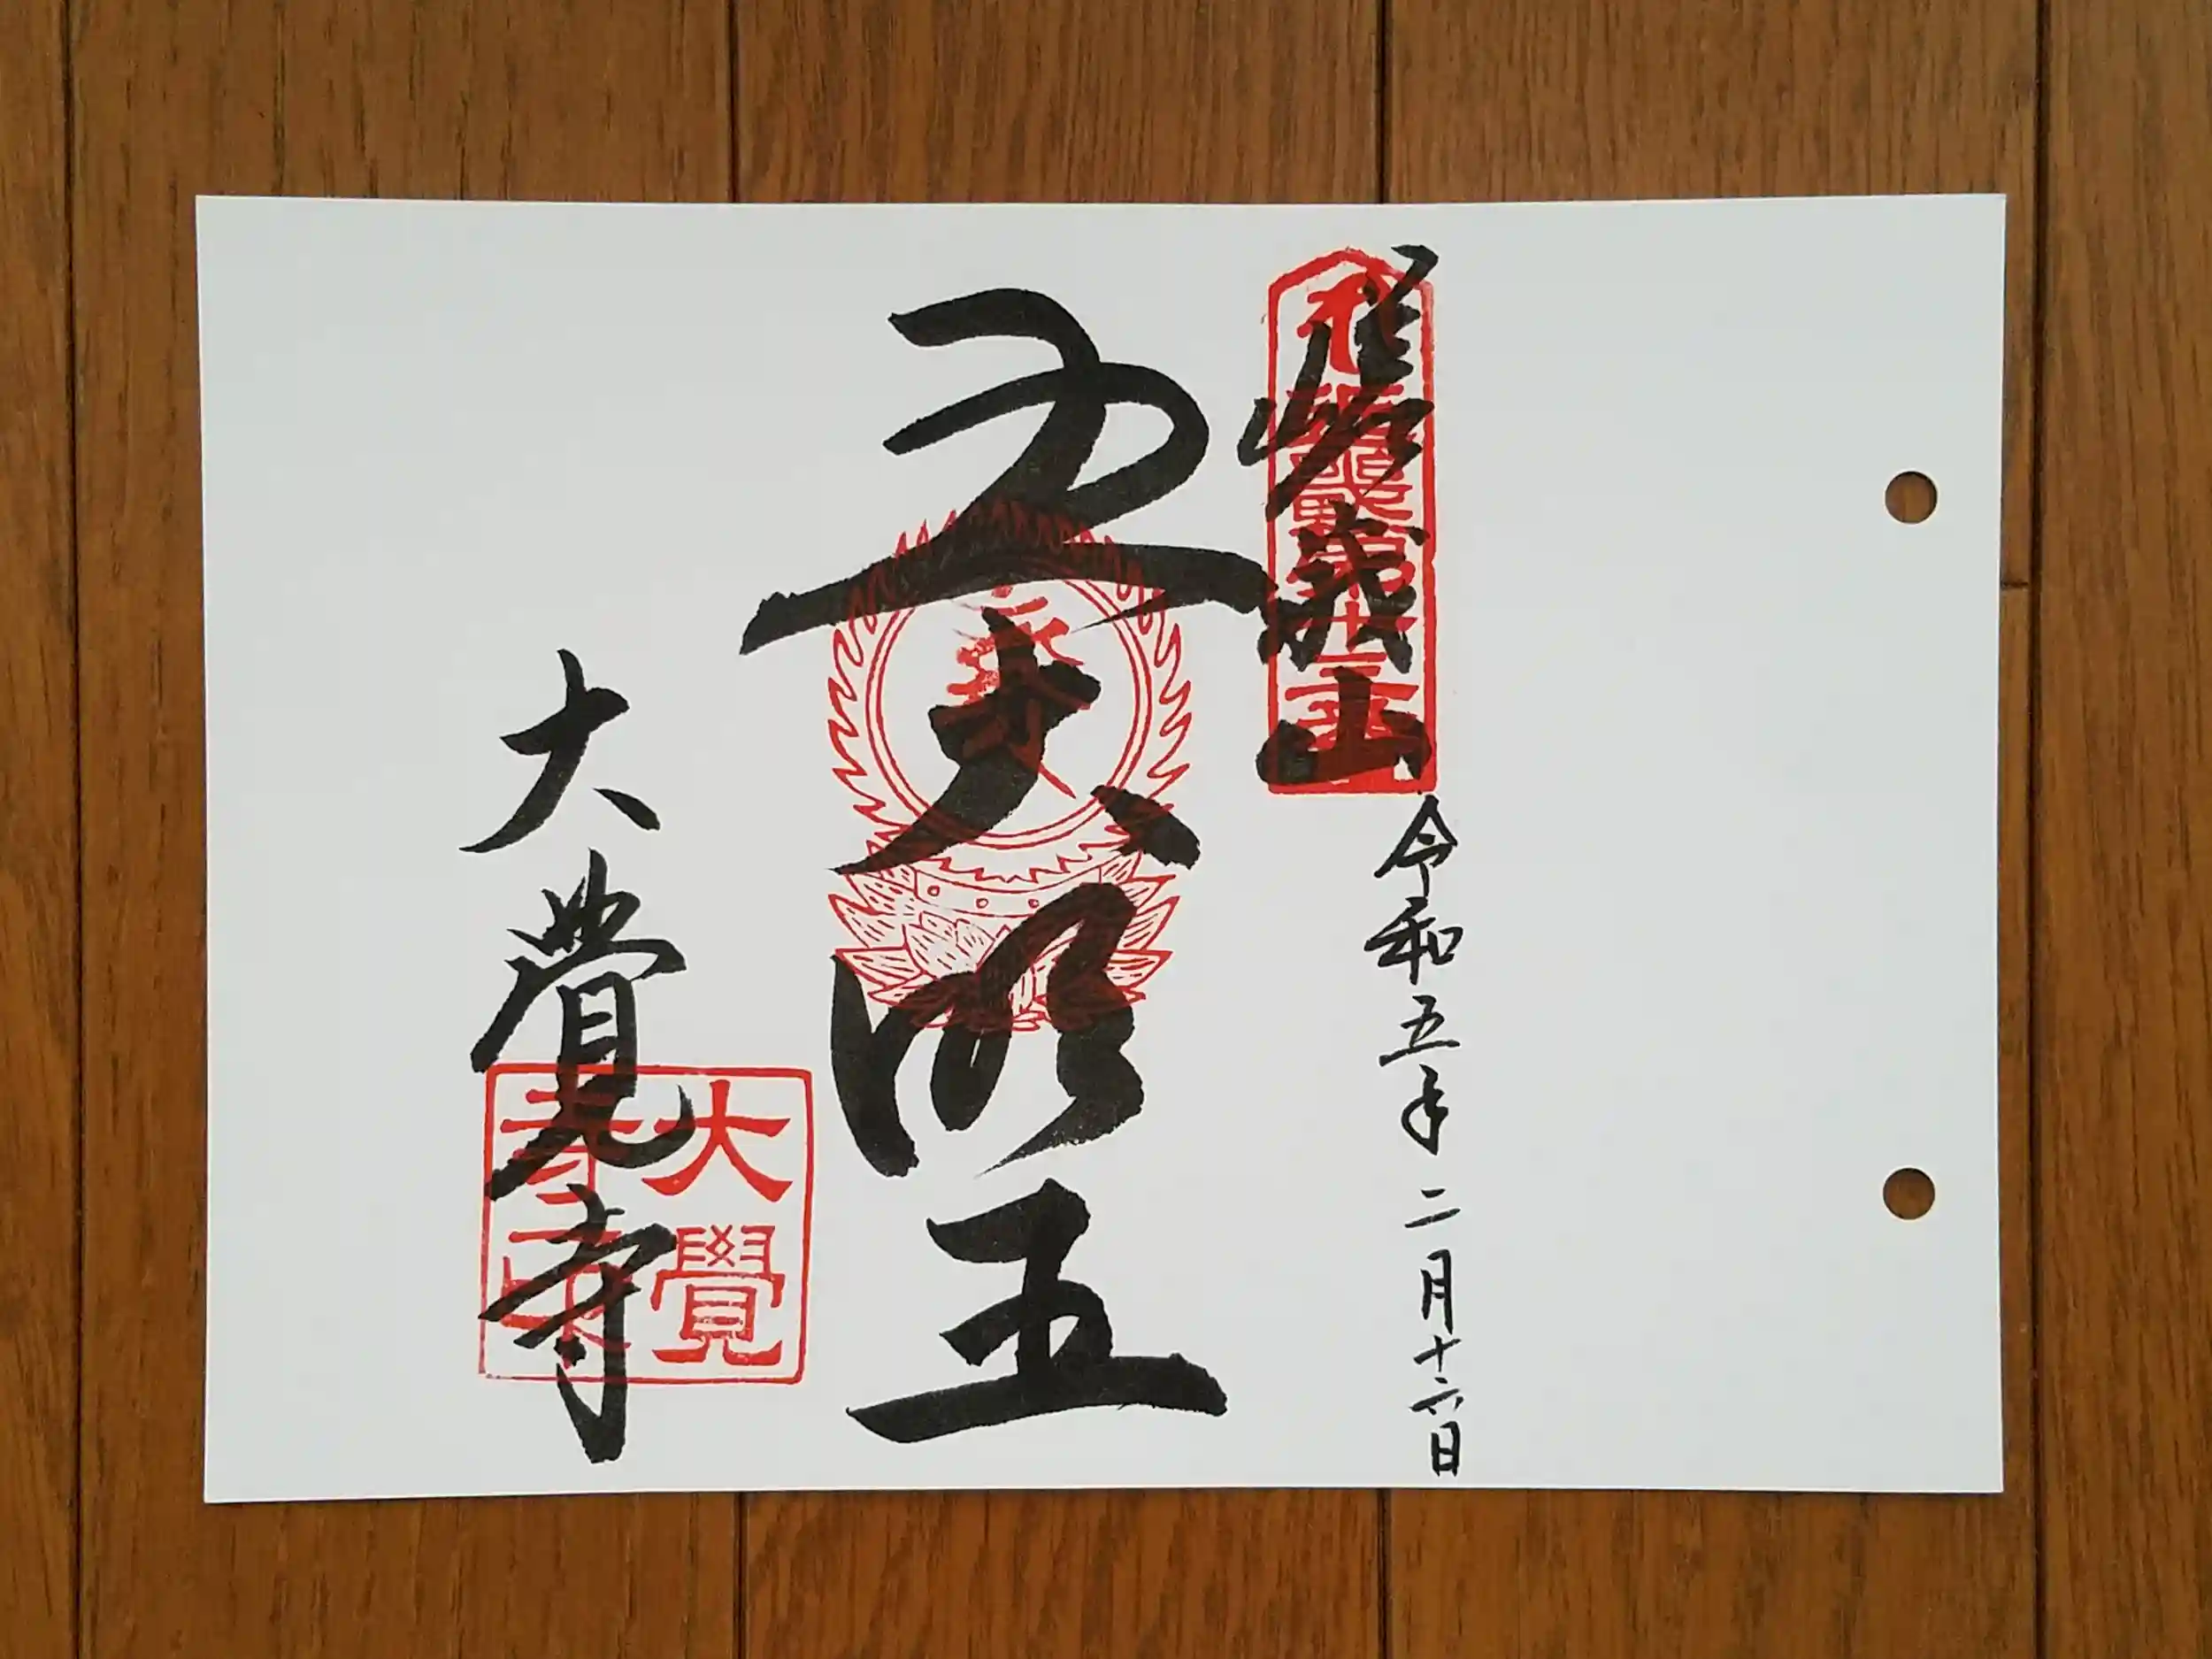 嵯峨山
令和五年二月十六日
五大明王
大覺寺
大覺
寺印